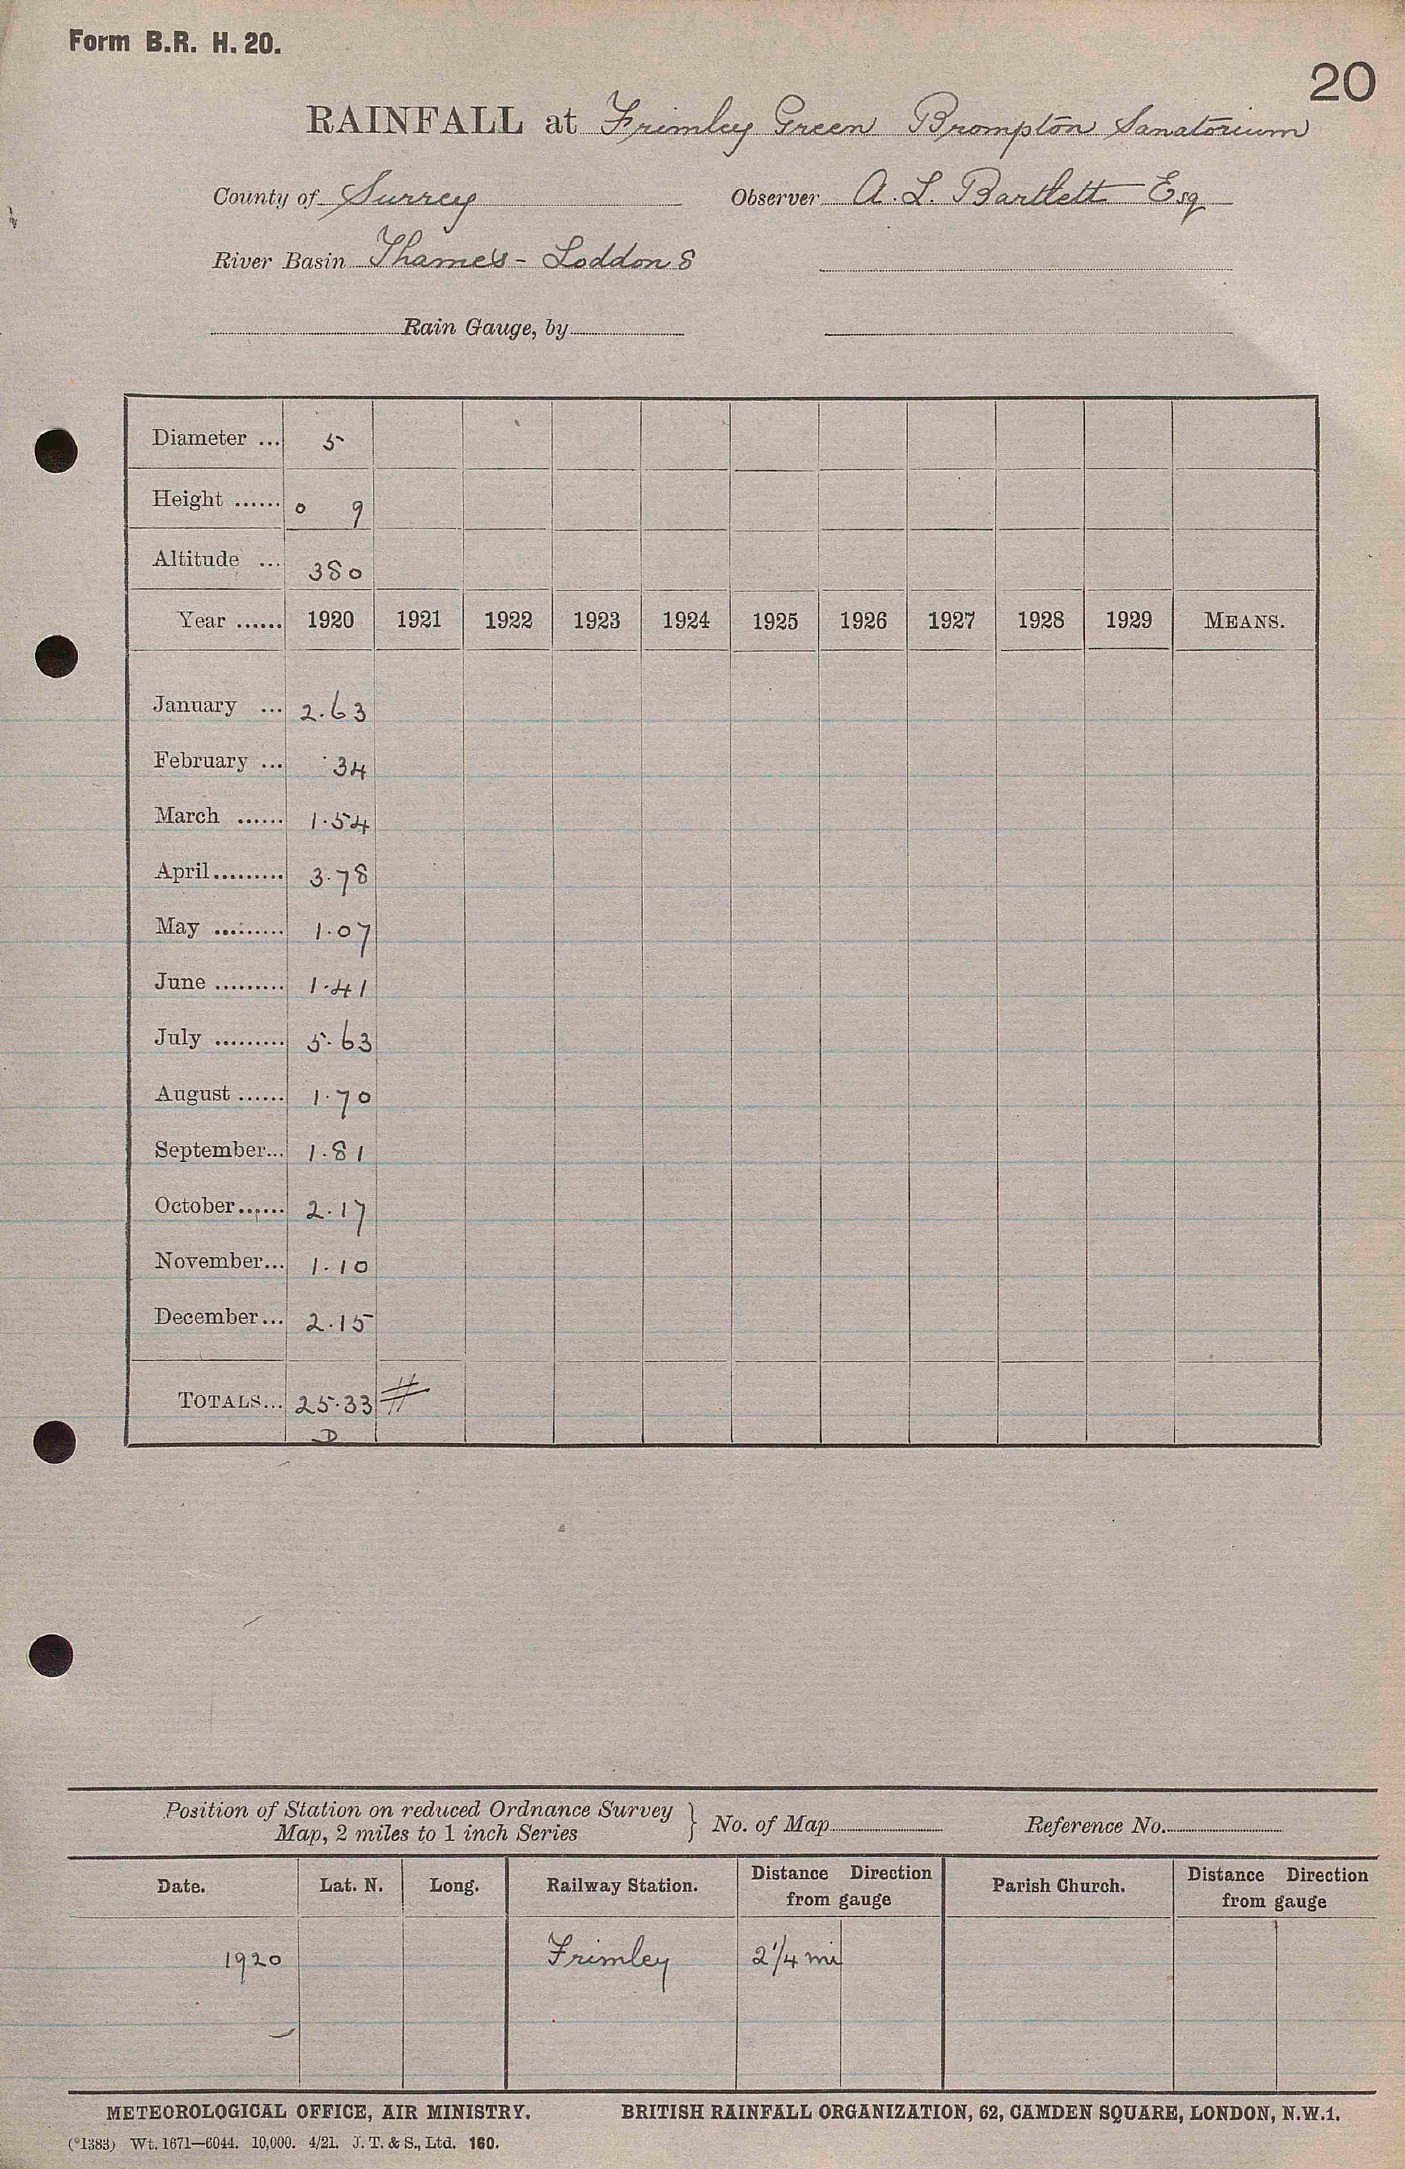 Form B.R. H. 20.
20
RAINFALL at Frimley Green Brompton Sanatorium
County of Surrey Observer A. L. Bartlett Esq
River Basin Thames - Loddon S
Rain Gauge, by
Diameter ... 5
Height ...... 0 9
Altitude ... 380
Year ...... 1920 1921 1922 1923 1924 1925 1926 1927 1928 1929 MEANS.
January ... 2.63
February ... .34
March ...... 1.54
April......... 3.78
May ......... 1.07
June ......... 1.41
July ......... 5.63
August ...... 1.70
September... 1.81
October...... 2.17
November... 1.10
December... 2.15
TOTALS... 25.33 #
D
Position of Station on reduced Ordnance Survey
Map, 2 miles to 1 inch Series } No. of Map Reference No.
Date. Lat. N. Long. Railway Station. Distance Direction from gauge Parish Church. Distance Direction from gauge
1920 Frimley 2 1/4 mi
METEOROLOGICAL OFFICE, AIR MINISTRY. BRITISH RAINFALL ORGANIZATION, 62, CAMDEN SQUARE, LONDON, N.W.1.
(*1383) Wt. 1671—6044. 10,000. 4/21. J. T. & S., Ltd. 160.